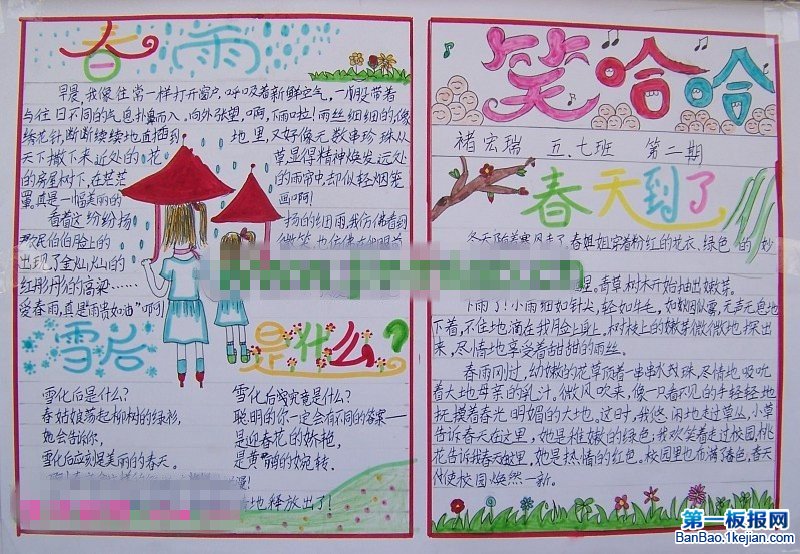 春雨
早晨,我像往常一样打开窗户,呼吸着新鲜空气,一股带着
与往日不同的气息扑鼻而入,向外张望,啊,下雨啦!雨丝细细的,像
绣花针,断断续续地直插到地里,又好像无数串珍珠从
天下撒下来近处的花草显得精神焕发,远处
的房屋树下,在茫茫的雨帘中,却似轻烟笼
罩。真是一幅美丽的画啊!
看着这纷纷扬扬的细雨,我仿佛看到
农民伯伯脸上的微笑,也仿佛
出现了金灿灿的
红彤彤的高粱……
受春雨,真是"雨贵如油"啊!
雪后是什么?
雪化后是什么?
春姑娘荡起柳树的绿衫,
她会告诉你,
雪化后应刻是美丽的春天。
雪化后究竟是什么?
聪明的你一定会有不同的答案—
是迎春花的娇艳,
是黄鹂的婉转。
地释放出了!
笑哈哈
褚宏瑞 五.七班 第二期
春天到了
冬天随着寒风走了,春姐姐穿着粉红的花衣、绿色的妙
里。青草树木开始抽出嫩芽。
下雨了!小雨细如针尖,轻如牛毛,如烟似雾,无声无息地
下着,不住地滴在我脸上身上。树枝上的嫩芽微微地探出
来,尽情地享受着甜甜的雨丝。
春雨刚过,幼嫩的花草顶着一串串水残珠,尽情地吸吮
着大地母亲的乳汁。微风吹来,像一只看不见的手轻轻地
抚摸着春光明媚的大地。这时,我悠闲地走过草丛,小草
告诉春天在这里,她是稚嫩的绿色;我欢笑着走过校园,桃
花告诉我春天在这里,她是热情的红色。校园里也布满了春色,春天
使校园焕然一新。
第一板报网
BanBao.1kejian.com